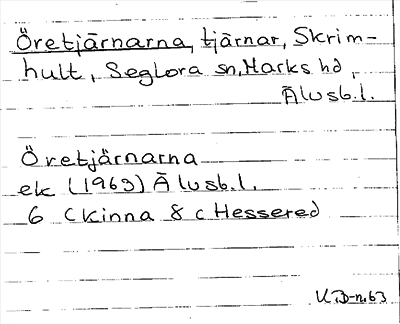 Öretjärnarna, tjärnar, Skrim-
hult, Seglora sn, Marks hd,
Älvsb.l.
Öretjärnarna
ek (1963) Älvsb.l.
6 C Kinna 8 c Hessered